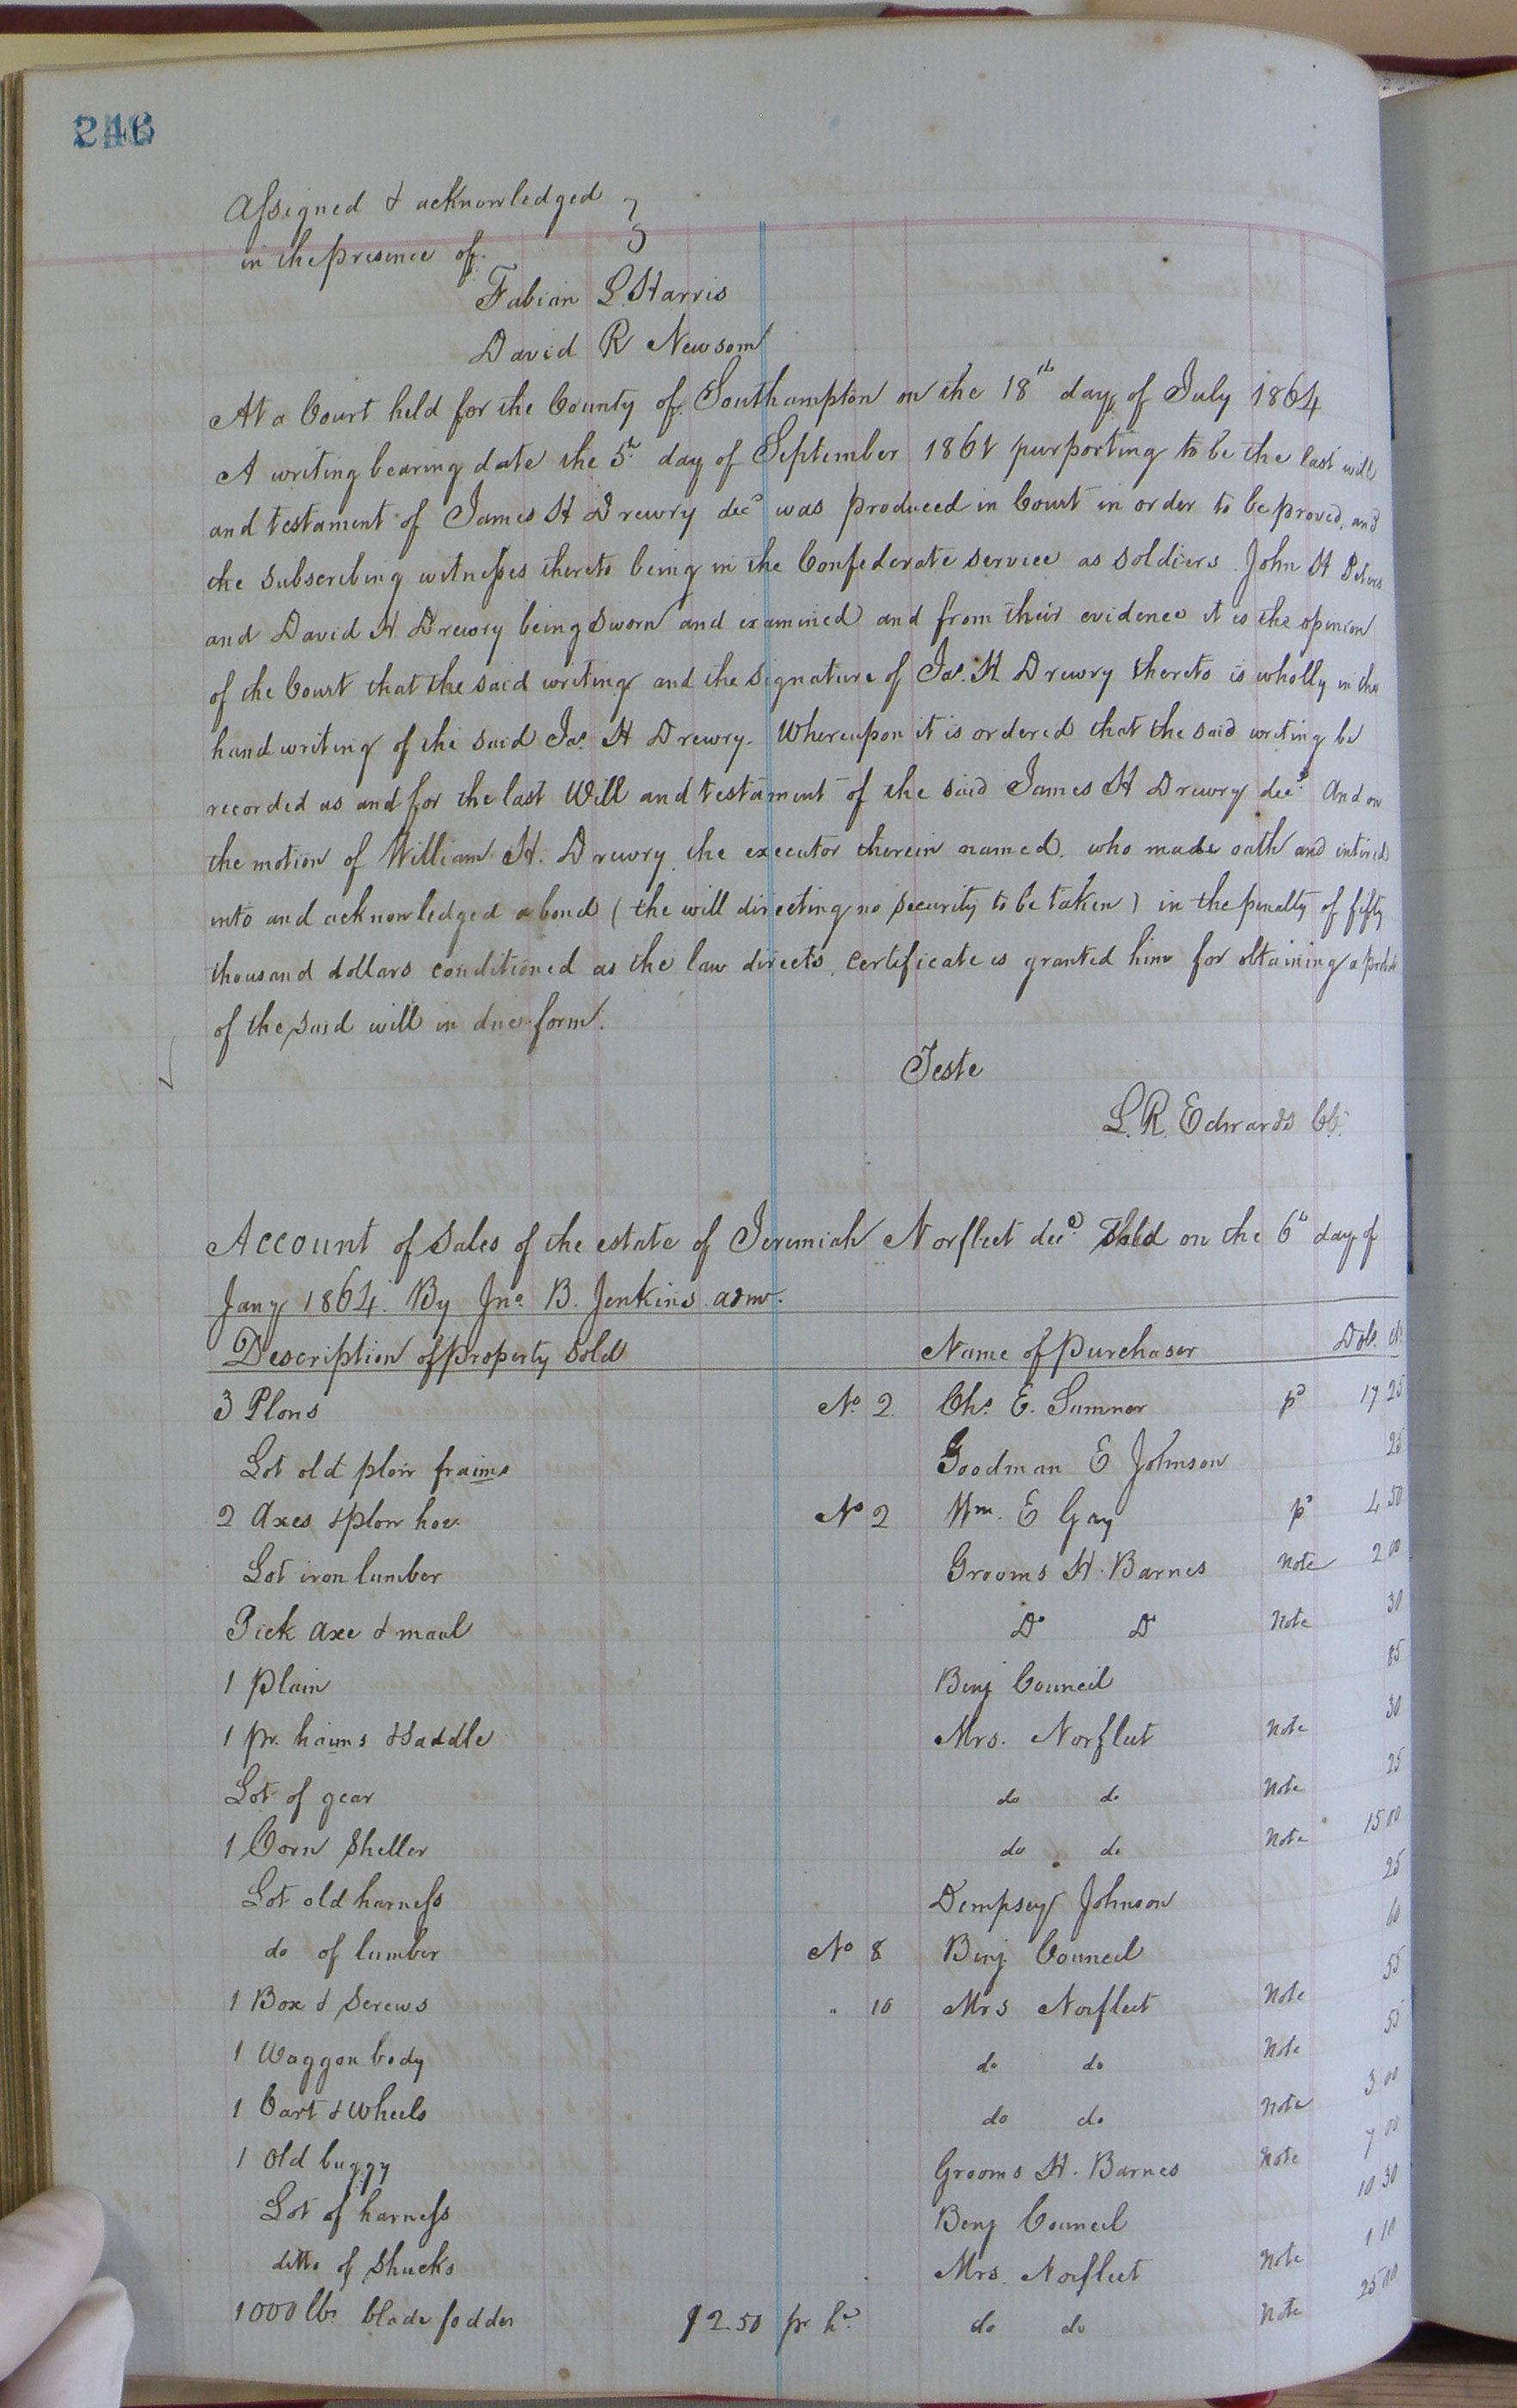 246
Assigned & acknowledged }
in the presence of
Fabian L. Harris
David R Newsom
At a Court held for the County of Southampton on the 18th day of July 1864
A writing bearing date the 5th day of September 1861 purporting to be the last will
and testament of James H Drewry decd was produced in Court in order to be proved, and
the subscribing witnesses thereto being in the Confederate service as soldiers John H Peters
and David H. Drewry being sworn and examined and from their evidence it is the opinion
of the Court that the said writing and the signature of Jas. H Drewry thereto is wholly in the
handwriting of the said Jas H Drewry. Whereupon it is ordered that the said writing be
recorded as and for the last Will and testament of the said James H Drewry decd. And on
the motion of William H. Drewry the executor therein named, who made oath and entered
into and acknowledged a bond (the will directing no security to be taken) in the penalty of fifty
thousand dollars conditioned as the law directs, certificate is granted him for obtaining a probate
of the said will in due form.
Teste
L. R. Edwards Ck.
Account of Sales of the estate of Jeremiah Norfleet decd. Sold on the 6th day of
Jany 1864. By Jno. B. Jenkins adm.
Description of property sold Name of purchaser Dols. cts
3 Plows No 2 Chs. E. Sumner pd 17 25
Lot old plow fraims Goodman E Johnson 25
2 Axes & plow hoe No 2 Wm. E Gay pd 4 50
Lot iron lumber Grooms H. Barnes Note 2 00
Pick axe & maul Do Do Note 30
1 plain Benj Council 85
1 pr. haims & Saddle Mrs. Norfleet Note 30
Lot of gear do do Note 25
1 Corn Sheller do do Note 15 00
Lot old harness Dempsey Johnson 25
do of lumber No 8 Benj. Council 60
1 Box & Screws " 10 Mrs Norfleet Note 55
1 Waggon body do do Note 55
1 Cart & Wheels do do Note 3 00
1 Old buggy Grooms H. Barnes Note 7 00
Lot of harness Benj Council 10 30
ditto of Shucks Mrs. Norfleet Note 1 10
1000 lbs. blade fodder $2.50 pr hd. do do Note 25 00